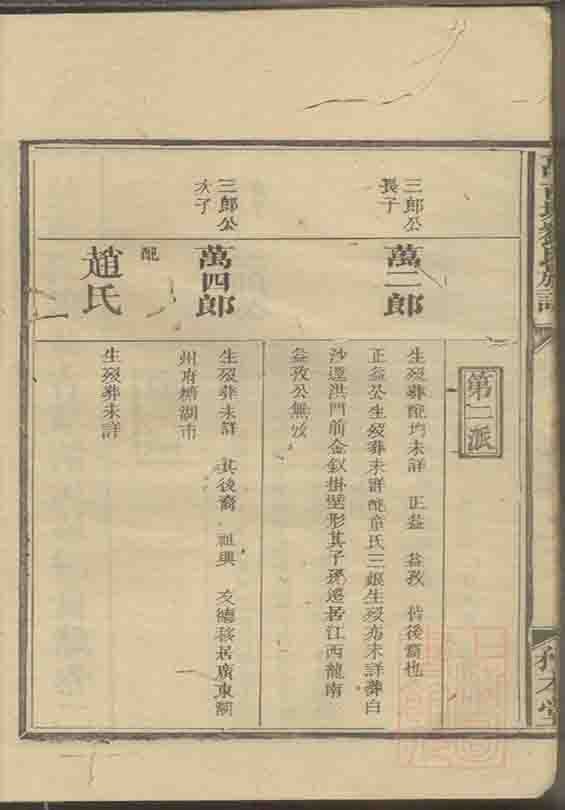 第二派
三郎公
長子
萬二郎
生歿葬配均未詳 正益 益孜 皆後裔也
正益公生歿葬未詳配童氏三娘生歿亦未詳葬白
沙逕洪門前金釵掛壁形其子 遷居江西龍南
益孜公無攷
三郎公
次子
萬四郎
生歿葬未詳 其後裔 祖興 友德移居廣東潮
州府 湖市
配
趙氏
生歿葬未詳
氏族譜
堂